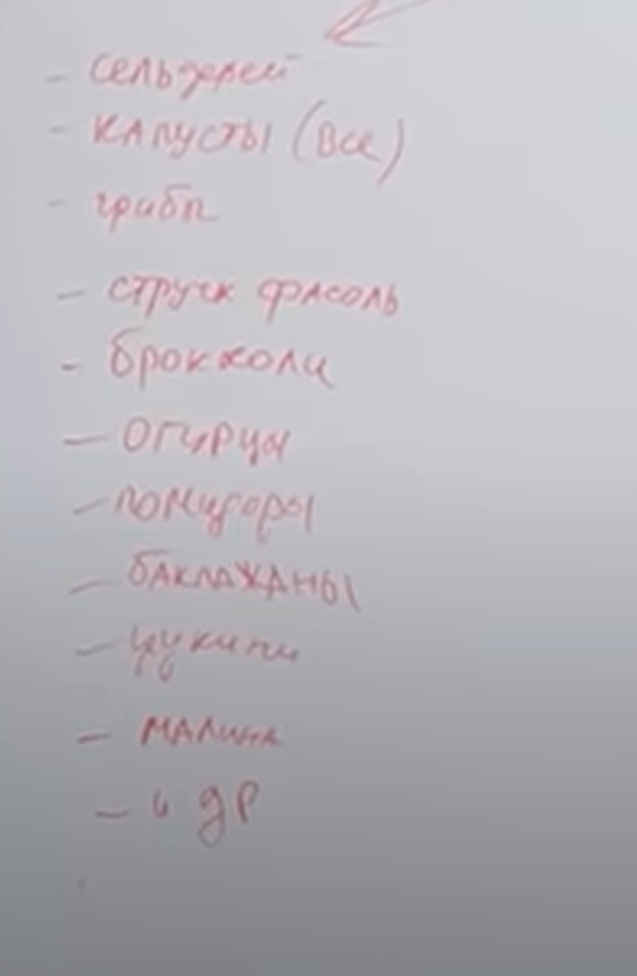 - сельдерей
- капусты (все)
- грибы
- стручк фасоль
- брокколи
- огурцы
- помидоры
- баклажаны
- цукини
- малина
- и др